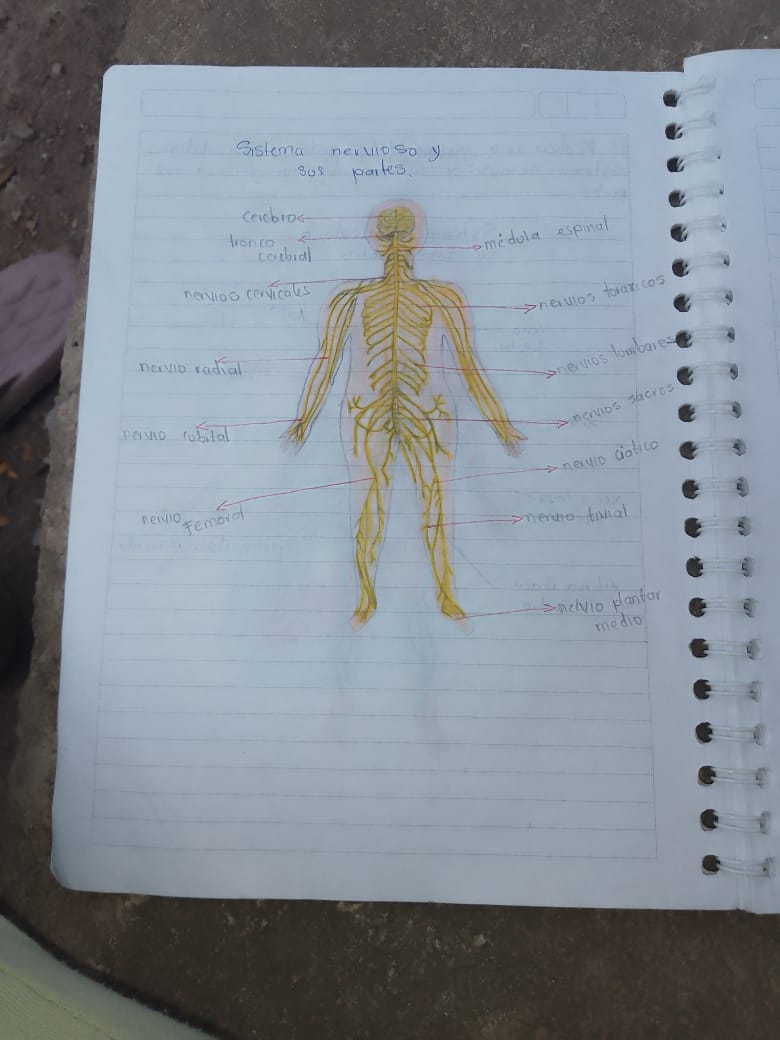 Sistema nervioso y
sus partes.
cerebro
tronco
cerebral
médula espinal
nervios cervicales
nervios toraxicos
nervio radial
nervios lumbares
nervios sacros
nervio cubital
nervio ciatico
nervio
Femoral
nervio tivial
nervio plantar
medio